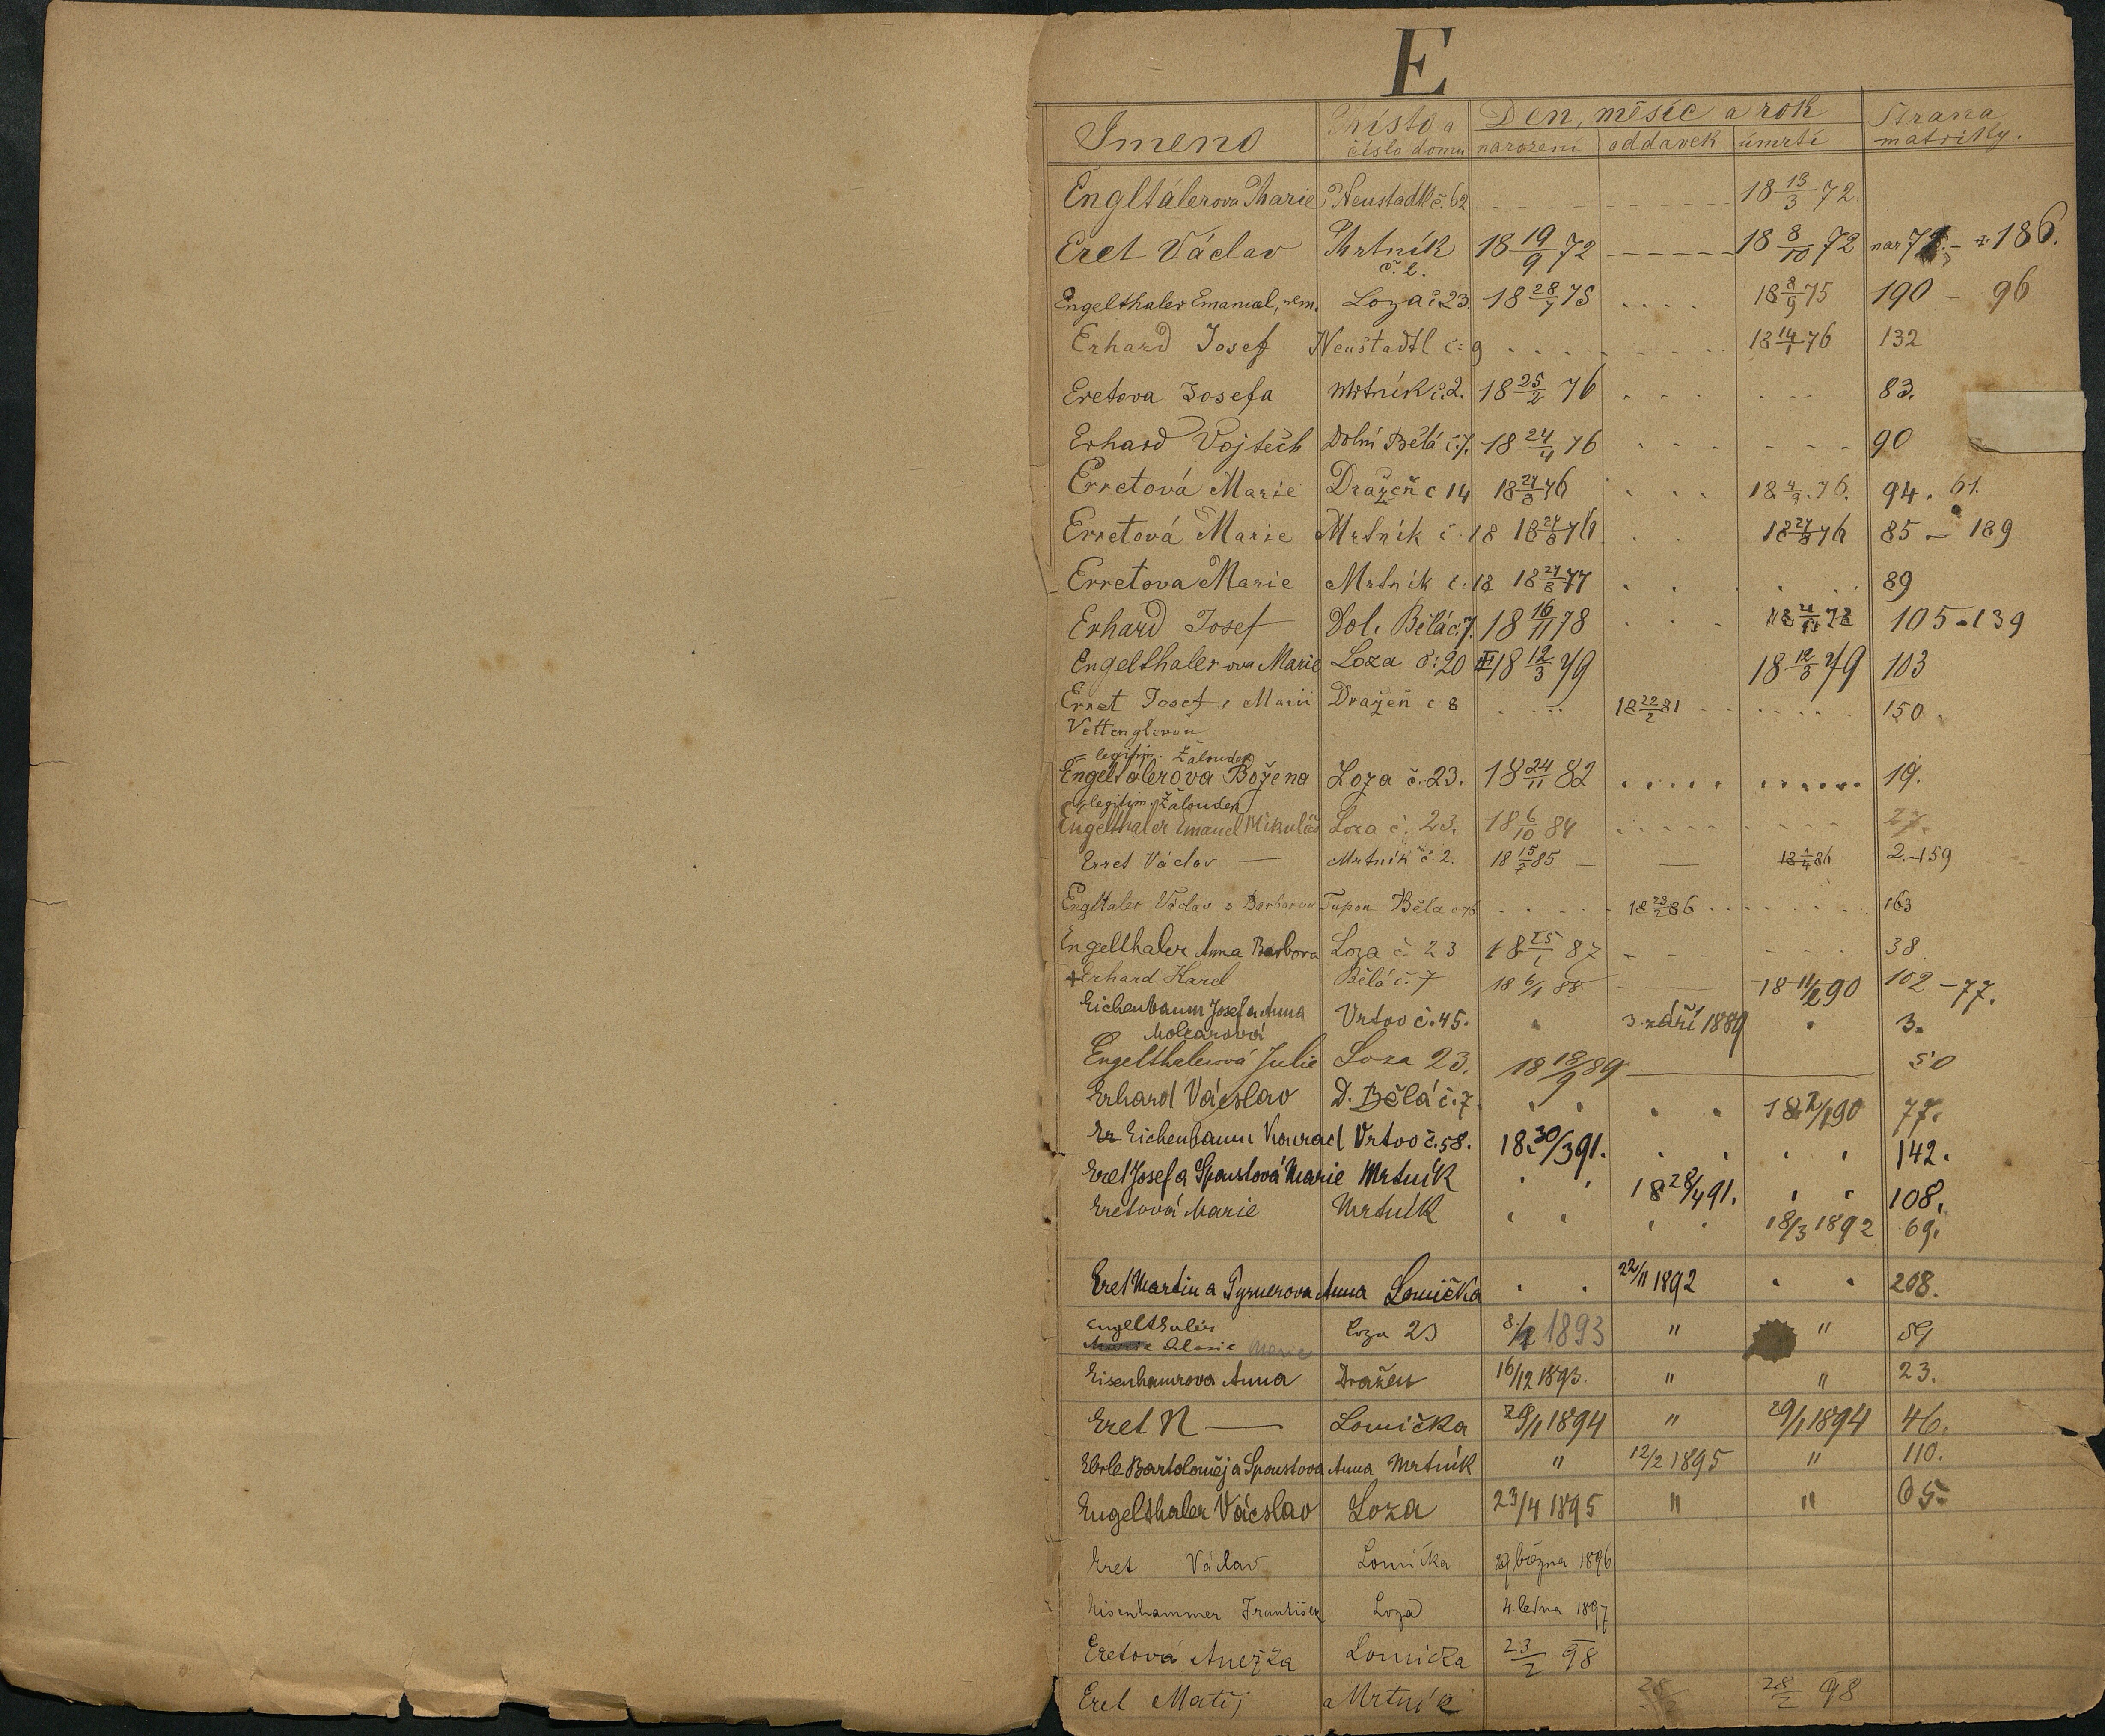 E
Jmeno Místo a Den, měsíc a rok Strana
číslo domu narození oddavek úmrtí matriky.
Engltálerova Marie Neustadtl č. 62 18 13/3 72
Eret Václav Mrtník 18 19/9 72 18 8/10 72 nar 71. - z 186.
č. 2.
Engelthaler Emanuel, nem. Loza č 23. 18 28/7 75 18 8/9 75 190 - 96
Erhard Josef Neustadtl č: 9 18 14/1 76 132
Eretova Josefa Mrtník č. 2. 18 25/2 76 83.
Erhard Vojtěch Dolní Bělá č. 7. 18 24/4 76 90
Erretová Marie Dražeň č 14 18 24/8 76 18 4/9 76. 94. 61.
Erretová Marie Mrtník č. 18 18 24/8 76 18 27/8 76 85 - 189
Erretova Marie Mrtník č: 18 18 24/8 77 89
Erhard Josef Dol. Bělá č. 7. 18 16/11 78 105 - 139
Engelthalerova Marie Loza č: 20 18 12/3 79 18 12/3 79 103
Erret Josef s Marii Dražeň č 8 18 22/2 81 150.
Vettenglerou
legitim. Žalouděk
Engeltálerova Božena Loza č. 23. 18 24/11 82 19.
legitim. Žalouděk
Engelthaler Emanuel Mikuláš Loza č. 23. 18 6/10 84 27.
Erret Václav — Mrtník č. 2. 18 15/7 85 — — 18 1/4 86 2. - 159
Engltaler Václav s Barborou Tupou Běla č 76 18 23/2 86 163
Engelthaler Anna Barbora Loza č 23 18 25/1 87 38.
+ Erhard Karel Bělá č. 7 18 6/1 88 18 11/2 90 102 - 77.
Eichenbaum Josef a Anna Vrtvo č. 45. 3. září 1889 3.
Molcarová
Engelthalerová Julie Loza 23. 18 18/9 89 50
Erhard Vácslav D. Bělá č. 7. 77.
Er Eichenbaum Konrad Vrtvo č. 58. 18 30/3 91. 142.
Eret Josef a Spoustová Marie Mrtník 18 28/4 91. 108.
Eretová Marie Mrtník 18/3 1892 69.
Eret Martin a Pyrnerova Anna Lomička 22/11 1892 208.
Engelthaler Loza 23 8/2 1893 " " 59
Marie Aloisie Marie
Eisenhamrova Anna Dražen 16/12 1893. " " 23.
Eret N — Lomička 29/1 1894 " 29/1 1894 46.
Eberle Bartoloměj a Spoustova Anna Mrtník " 12/2 1895 " 110.
Engelthaler Vácslav Loza 23/4 1895 " " 65.
Eret Václav Lomička 29 března 1896
Eisenhammer František Loza 4. ledna 1897
Eretová Anežka Lomička 23/2 98
Eret Matěj Mrtník 28/2 98